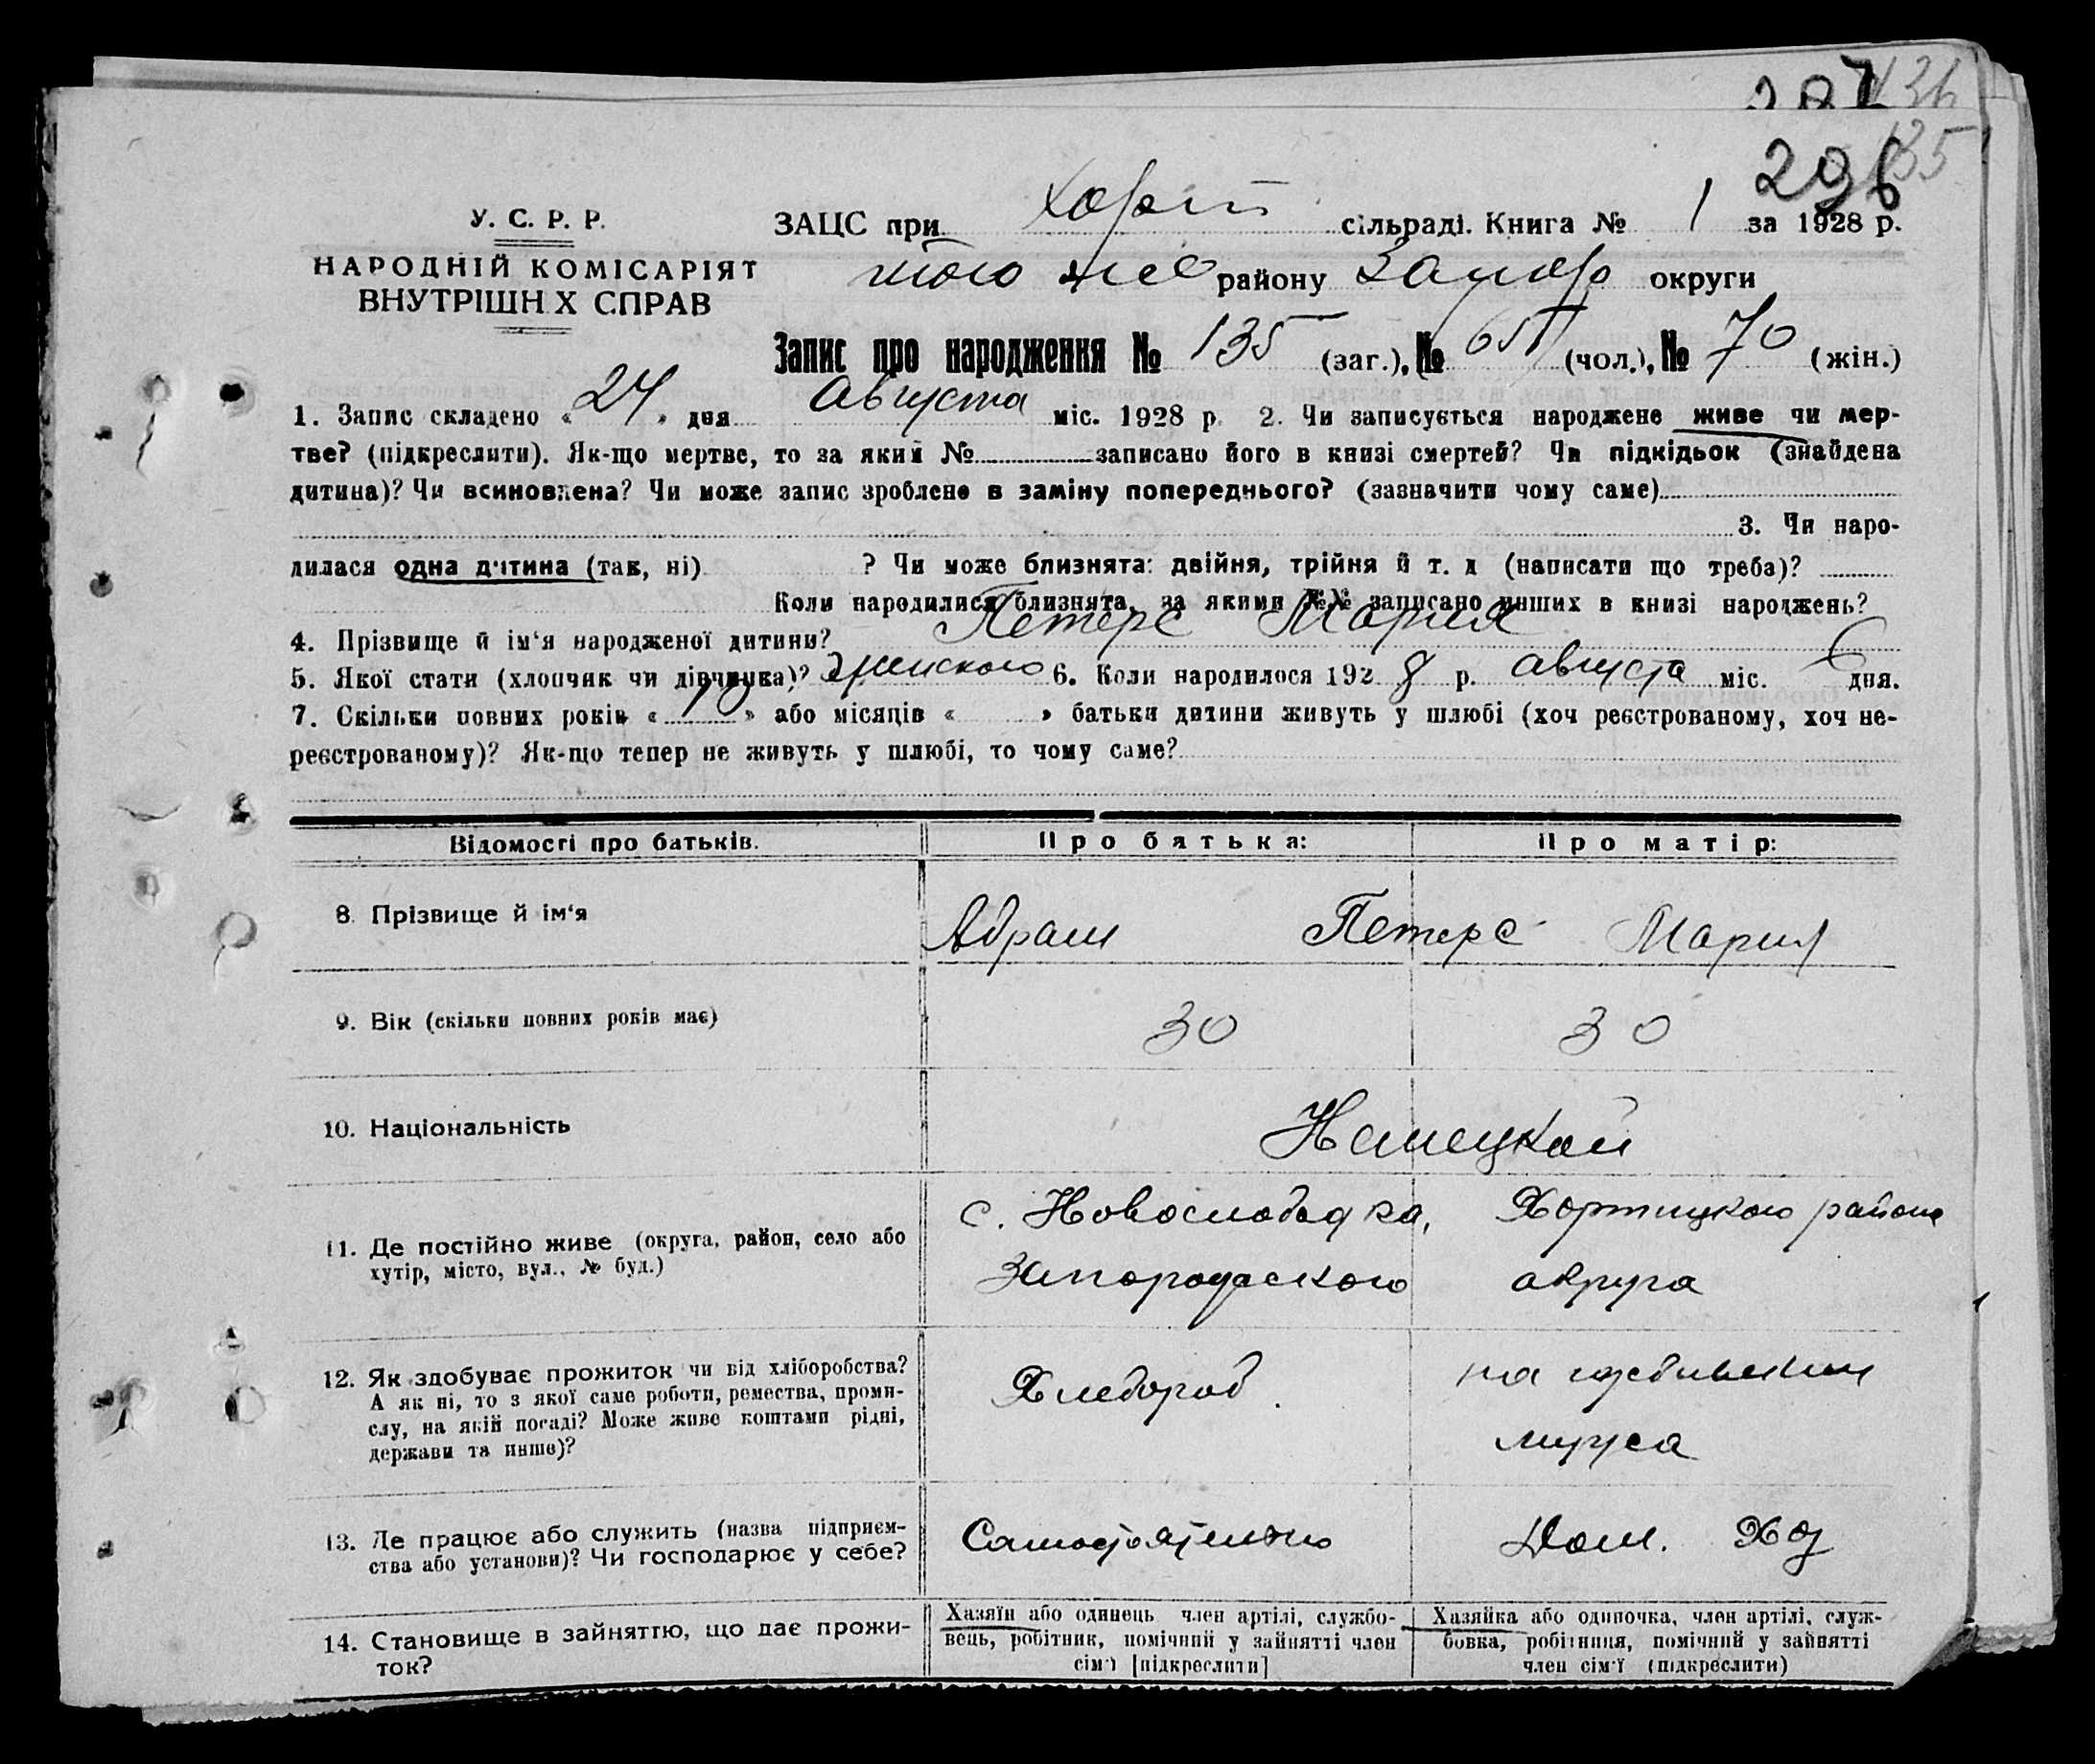 287 136
296 135
У. С. Р. Р.
НАРОДНІЙ КОМІСАРІЯТ
ВНУТРІШН Х СПРАВ
ЗАЦС при Хорт сільраді. Книга № 1 за 1928 р.
того же району Запор округи
Запис про народження № 135 (заг.), № 65 (чол.), № 70 (жін.)
1. Запис складено « 24 » дня Августа міс. 1928 р. 2. Чи записується народжене живе чи мер-
тве? (підкреслити). Як-що мертве, то за який № записано його в книзі смертей? Чи підкідьок (знайдена
дитина)? Чи всиновлена? Чи може запис зроблено в заміну попереднього? (зазначити чому саме)
3. Чи наро-
дилася одна дитина (так, ні) ? Чи може близнята: двійня, трійня й т. д (написати що треба)?
Коли народилися близнята, за якими №№ записано инших в книзі народжень?
4. Прізвище й ім‘я народженої дитини? Петерс Мария
5. Якої стати (хлопчик чи дівчинка)? женского 6. Коли народилося 1928 р. августа міс. 6 дня.
7. Скільки повних років « 10 » або місяців « » батьки дитини живуть у шлюбі (хоч реєстрованому, хоч не-
реєстрованому)? Як-що тепер не живуть у шлюбі, то чому саме?
Відомості про батьків. Про батька: Про матір:
8. Прізвище й ім‘я Абрам Петерс Мария
9. Вік (скільки повних років має) 30 30
10. Національність Немецкой
11. Де постійно живе (округа, район, село або
хутір, місто, вул., № буд.)
с. Новослободка, Хортицкого района
Запорожского округа
12. Як здобуває прожиток чи від хліборобства?
А як ні, то з якої саме роботи, ремества, проми-
слу, на якій посаді? Може живе коштами рідні,
держави та инше)?
Хлебороб. на иждивении
мужа
13. Де працює або служить (назва підприєм-
ства або установи)? Чи господарює у себе?
Самостоятельно Дом. Хоз
14. Становище в зайняттю, що дає прожи-
ток?
Хазяїн або одинець член артілі, службо-
вець, робітник, помічний у зайнятті член
сім‘ї [підкреслити]
Хазяйка або одиночка, член артілі, служ-
бовка, робітниця, помічний у зайнятті
член сім‘ї (підкреслити)